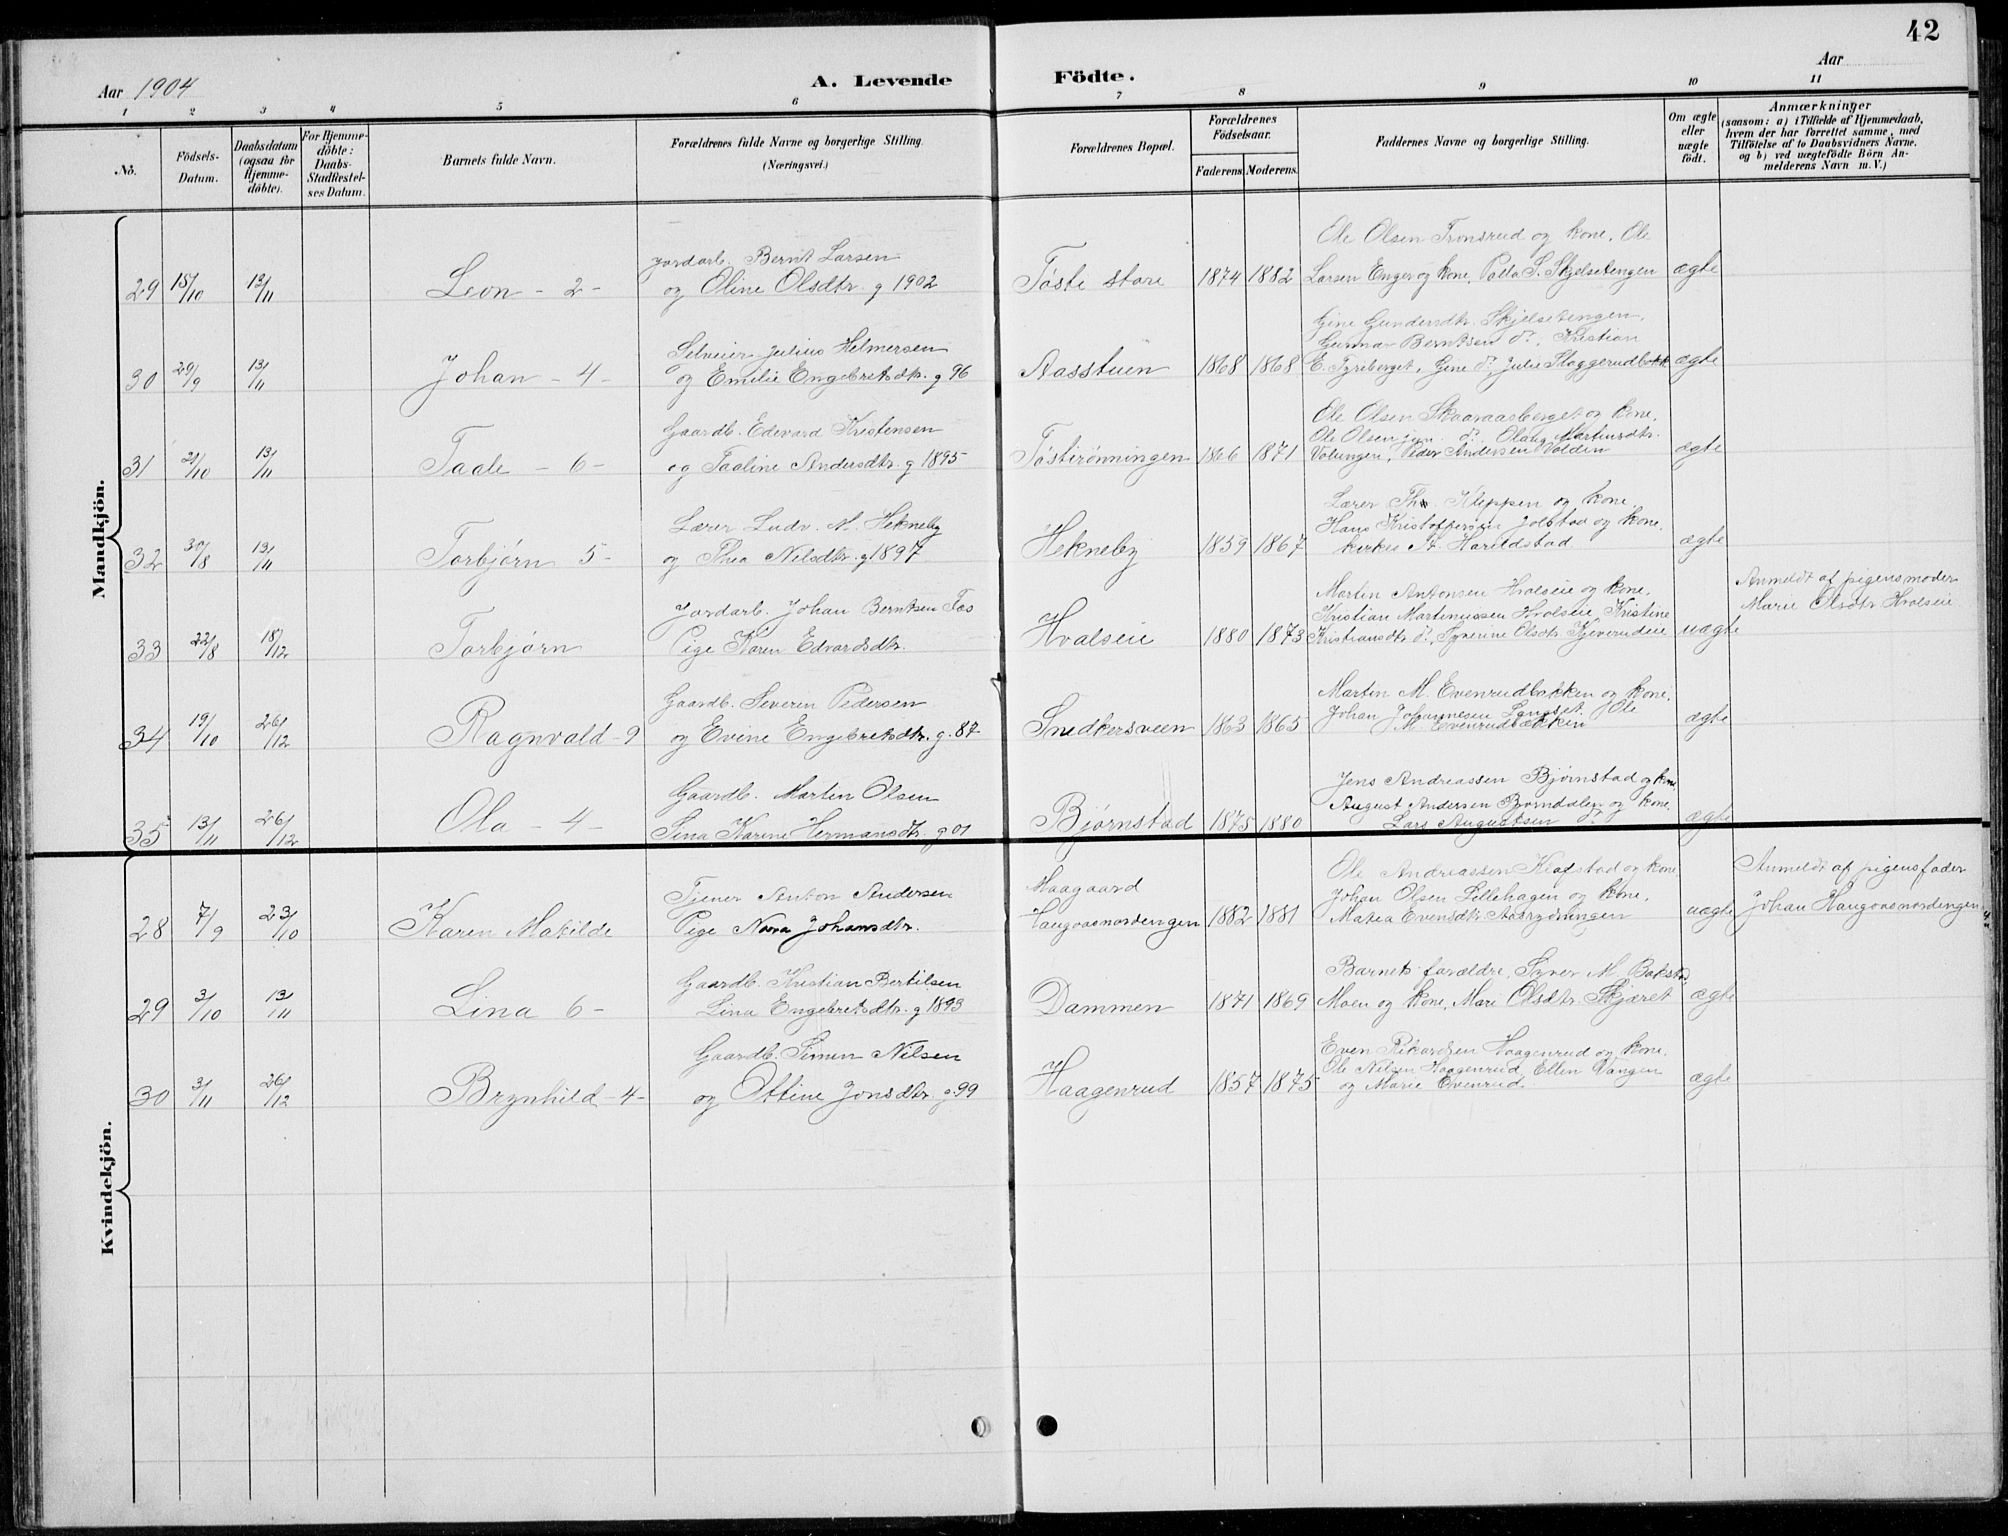 42
Aar 1904
A. Levende Födte.
Aar
1 2 3 4 5 6 7 8 9 10 11
No.
Födsels-
Datum.
Daabsdatum
(ogsaa for
Hjemme-
döbte).
For Hjemme-
döbte:
Daabs-
Stadfestel-
ses Datum.
Barnets fulde Navn.
Forældrenes fulde Navne og borgerlige Stilling.
(Næringsvei.)
Forældrenes Bopæl.
Forældrenes
Födselsaar.
Faderens. Moderens.
Faddernes Navne og borgerlige Stilling.
Om ægte
eller
uægte
födt.
Anmærkninger
(saasom: a) i Tilfælde af Hjemmedaab,
hvem der har forrettet samme, med
Tilföielse af to Daabsvidners Navne,
og b) ved uægtefödte Börn An-
melderens Navn m. V.)
Mandkjön.
29 15/10 13/11 Leon - 2 -
Jordarb. Bernt Larsen
og Oline Olsdtr. g 1902
Töste store 1874 1882
Ole Olsen Tronsrud og kone, Ole
Larsen Enger og kone, S. Skjelsetengen
ægte
30 29/9 13/11 Johan - 4 -
Selveier Julius Helmersen
og Emilie Engebretsdtr. g 96
Aasstuen 1868 1868
Gine Gundersdtr. Skjelsetengen,
Gunnar Berntsen do, Kristian
E. Fyreberget, Gine do, Julie Slaggerudbakk
ægte
31 21/10 13/11 Taale - 6 -
Gaardb. Edevard Kristensen
og Taaline Andersdtr. g 1895
Töstirönningen 1866 1871
Ole Olsen Skaaraasberget og kone,
Ole Olsen jun. do, Olaug Martinsdtr.
Volungen, Peder Andersen Volden
ægte
32 30/8 13/11 Torbjörn 5 -
Lærer Ludv. M. Hekneby
og Thea Nilsdtr. g 1897
Hekneby 1859 1867
Lærer Th. Kleppen og kone,
Hans Kristoffersen Jolstad og kone,
kirkes. A. Harildstad
ægte
33 22/8 18/12 Torbjørn
Jordarb. Johan Berntsen Fos
Pige Karen Edvardsdtr.
Hvalseie 1880 1873
Martin Antonsen Hvalseie og kone,
Kristian Martinussen Hvalseie, Kristine
Kristiansdtr do, Syverine Olsdtr. Kjeverudeie
uægte
Anmeldt af pigens moder
Marie Olsdtr. Hvalseie
34 19/10 26/12 Ragnvald - 9
Gaardb. Severin Pedersen
og Evine Engebretsdtr. g. 87
Snedkersveen 1863 1865
Martin M. Evenrudbakken og kone,
Johan Johannesen Langset, Ole
M. Evenrudbakken
ægte
35 13/11 26/12 Ola - 4 -
Gaardb. Martin Olsen
Sina Karine Hermansdtr. g 01
Bjørnstad 1875 1880
Jens Andreassen Bjørnstad og kone
August Andersen Bjørndalen og kone,
Lars Augustsen do
ægte
Kvindekjön.
28 7/9 23/10 Karen Matilde
Tjener Anton Andersen
Pige Nora Johansdtr.
Haagaard
Haugaasnordengen 1882 1881
Ole Andreassen Klafstad og kone
Johan Olsen Lillehagen og kone,
Matea Evensdtr.
uægte
Anmeldt af pigens fader
Johan Haugaasnordengen
29 3/10 13/11 Lina 6 -
Gaardb. Kristian Bertilsen
Lina Engebretsdtr. g 1893
Dammen 1871 1869
Barnets forældre, Syver M. Bakstad
Moen og kone, Mari Olsdtr. Skjæret
ægte
30 3/11 26/12 Brynhild - 4 -
Gaardb. Simen Nilsen
og Ottine Jonsdtr. g. 99
Haagenrud 1857 1875
Even Rikardsen Haagenrud og kone,
Ole Nilsen Haagenrud, Ellen Vangen
og Marie Evenrud
ægte